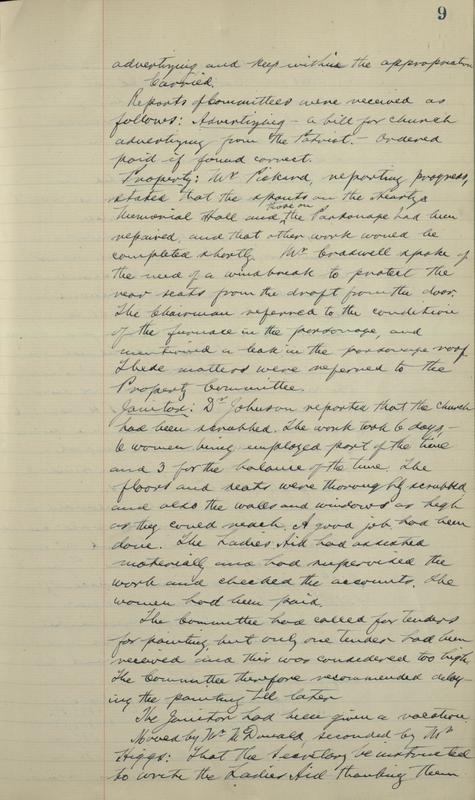 9
advertizing and keep within the appropriation
Carried.
Reports of Committees were received as
follows: Advertizing - a bill for church
advertizing from "the Patriot." - Ordered
paid if found correct.
Property: Mr Pickard, reporting progress,
stated that the spouts on the Heartz
those on
Memorial Hall and the Parsonage had been
repaired, and that other work would be
completed shortly. Mr Cradwell spoke of
the need of a windbreak to protect the
rear seats from the draft from the door.
The Chairman referred to the condition
of the furnace in the parsonage, and
mentioned a leak in the parsonage roof.
These matters were referred to the
Property Committee.
Janitor: Dr Johnson reported that the church
had been scrubbed. The work took 6 days -
6 women being employed part of the time
and 3 for the balance of the time. The
floors and seats were thoroughly scrubbed
and also the walls and windows as high
as they could reach. A good job had been
done. The Ladies Aid had assisted
materially and had supervised the
work and checked the accounts. The
women had been paid.
The Committee had called for tenders
for painting, but only one tender had been
received and this was considered too high.
The Committee therefore recommended delay-
ing the painting till later
The Janitor had been given a vacation.
Moved by Mr McDonald, seconded by Mr
Higgs: That the Secretary be instructed
to write the Ladies Aid thanking them